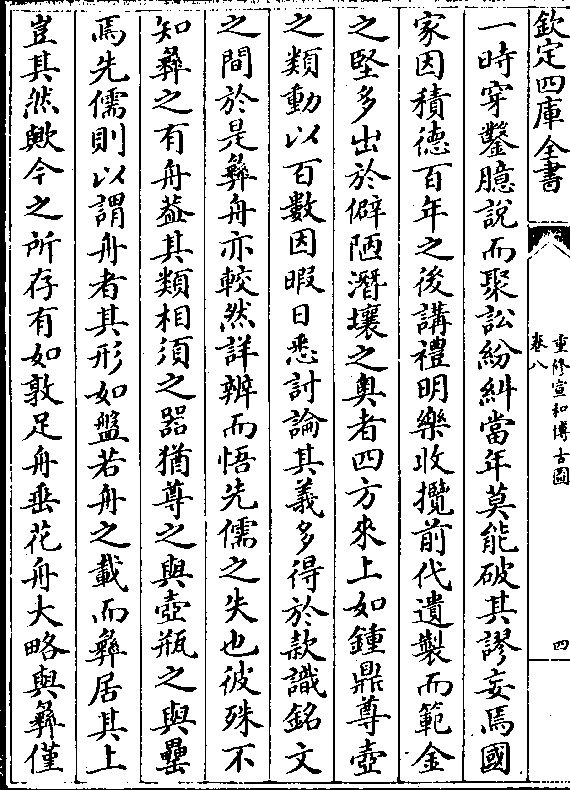 欽定四庫全書
重修宣和博古圖
卷八
四
一時穿鑿臆說而聚訟紛糾當年莫能破其謬妄焉國
家因積德百年之後講禮明樂收攬前代遺製而範金
之堅多出於僻陋潛壤之奧者四方來上如鍾鼎尊壺
之類動以百數因暇日悉討論其義多得於款識銘文
之間於是彞舟亦較然詳辨而悟先儒之失也彼殊不
知彞之有舟葢其類相須之器猶尊之與壺瓶之與罍
焉先儒則以謂舟者其形如盤若舟之載而彞居其上
豈其然歟今之所存有如敦足舟垂花舟大略與彞僅